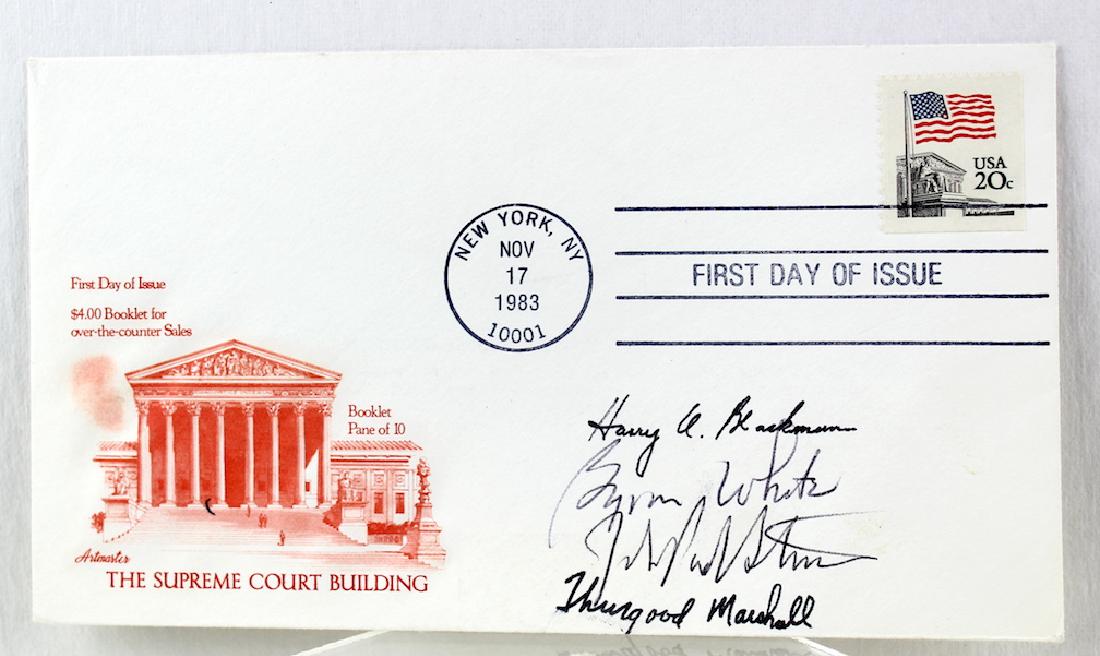 USA
20c
NEW YORK, NY
NOV
17
1983
10001
FIRST DAY OF ISSUE
First Day of Issue
$4.00 Booklet for
over-the-counter Sales
Booklet
Pane of 10
Artmaster
THE SUPREME COURT BUILDING
Harry A. Blackmun
Byron White
John Paul Stevens
Thurgood Marshall